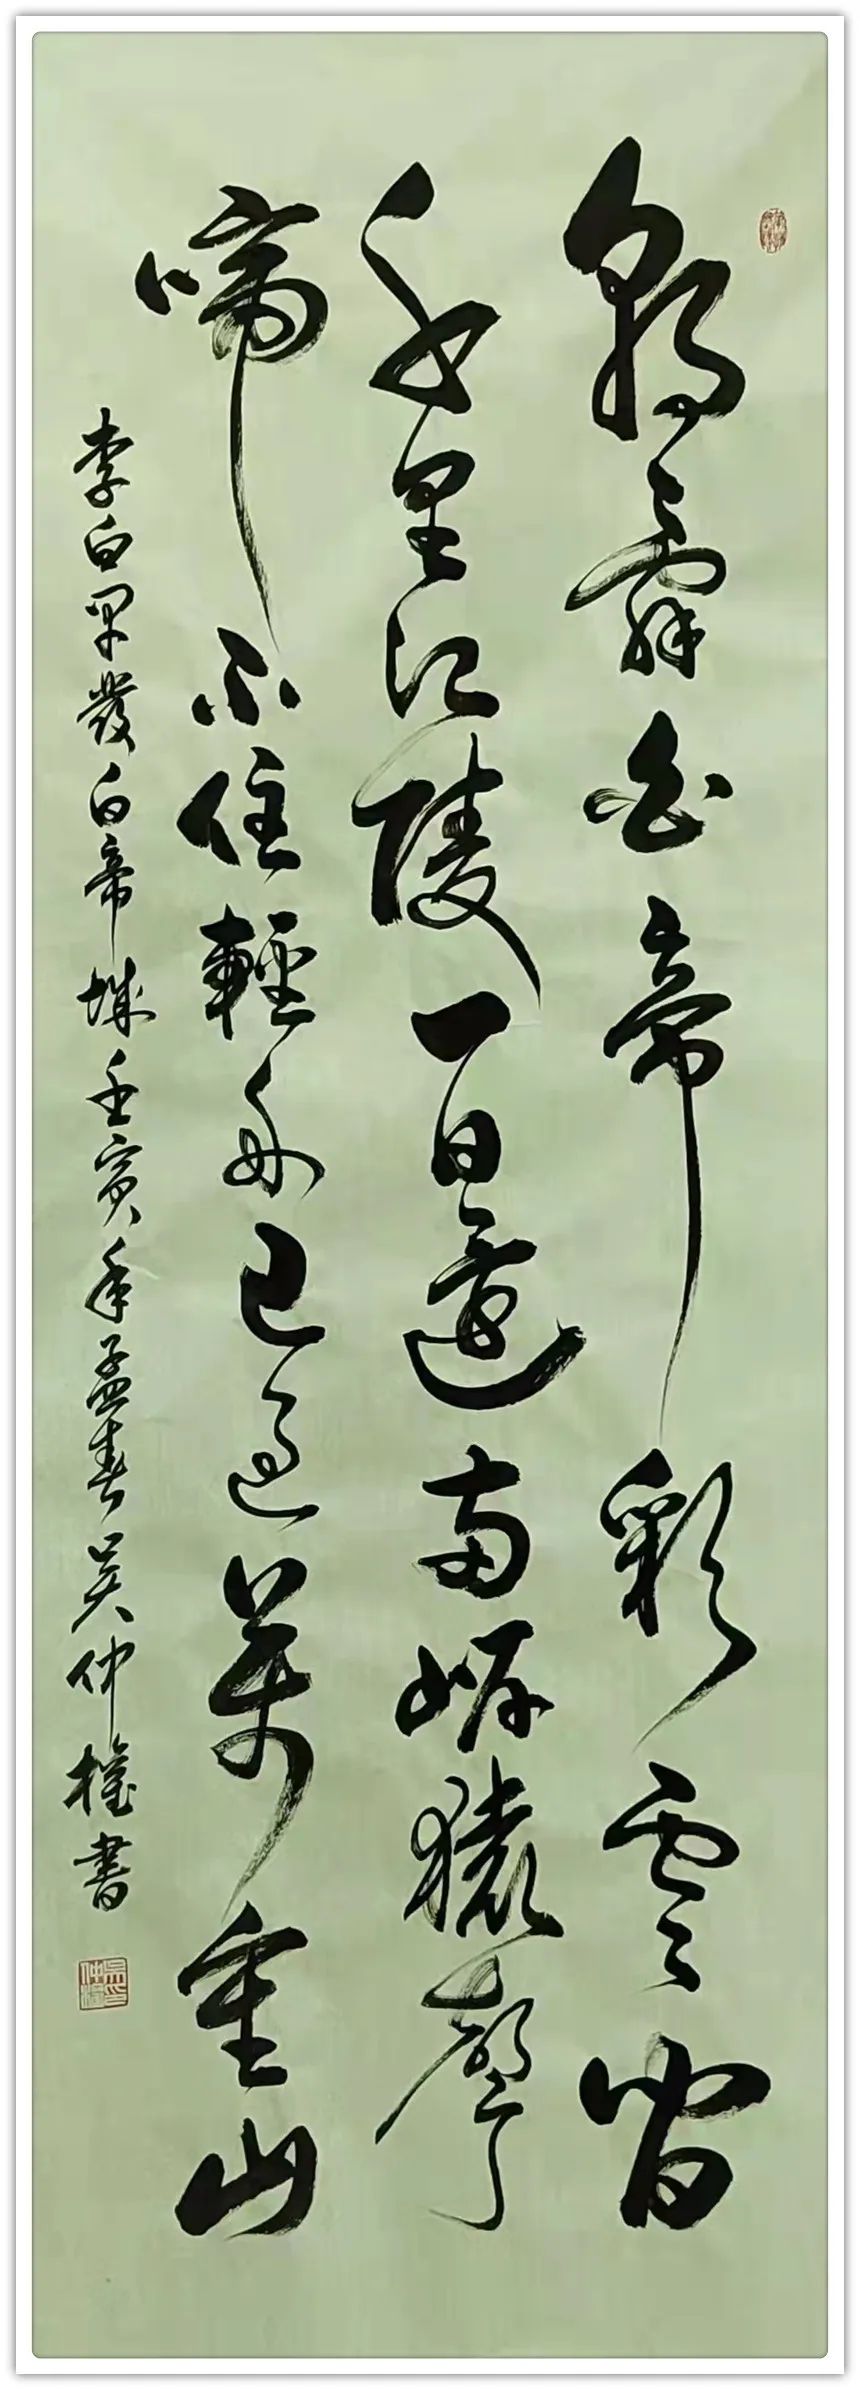 朝辭白帝彩雲間
千里江陵一日還兩岸猿聲
啼不住輕舟已過萬重山
李白早發白帝城壬寅年孟春吳仲權書